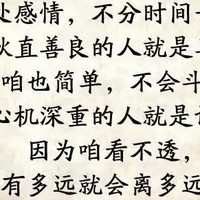 处感情，不分时间
伙直善良的人就是
咱也简单，不会斗
心机深重的人就是
因为咱看不透，
有多远就会离多远